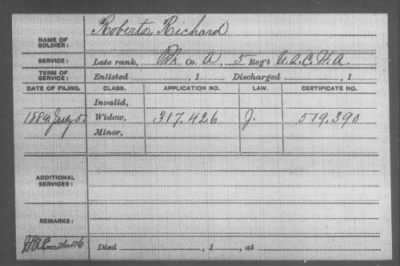 NAME OF SOLDIER: Roberts, Richard
SERVICE: Late rank, Co. A, 5 Reg't U.S.C.H.A.
TERM OF SERVICE: Enlisted , 1 Discharged , 1
DATE OF FILING. CLASS. APPLICATION NO. LAW. CERTIFICATE NO.
Invalid,
1884 July 5 Widow, 317.426 J. 519.390
Minor,
ADDITIONAL SERVICES:
REMARKS:
Died , 1 , at